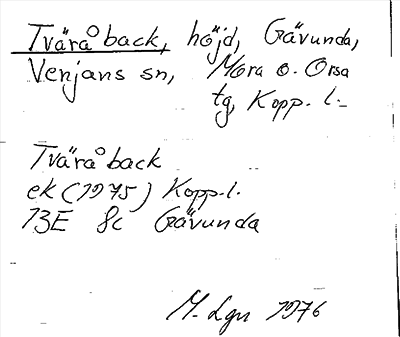 Tväråback, höjd, Gävunda,
Venjans sn, Mora o. Orsa
tg, Kopp. l.
Tväråback
ek (1975) Kopp. l.
13E 8c Gävunda
M. Lgn 1976